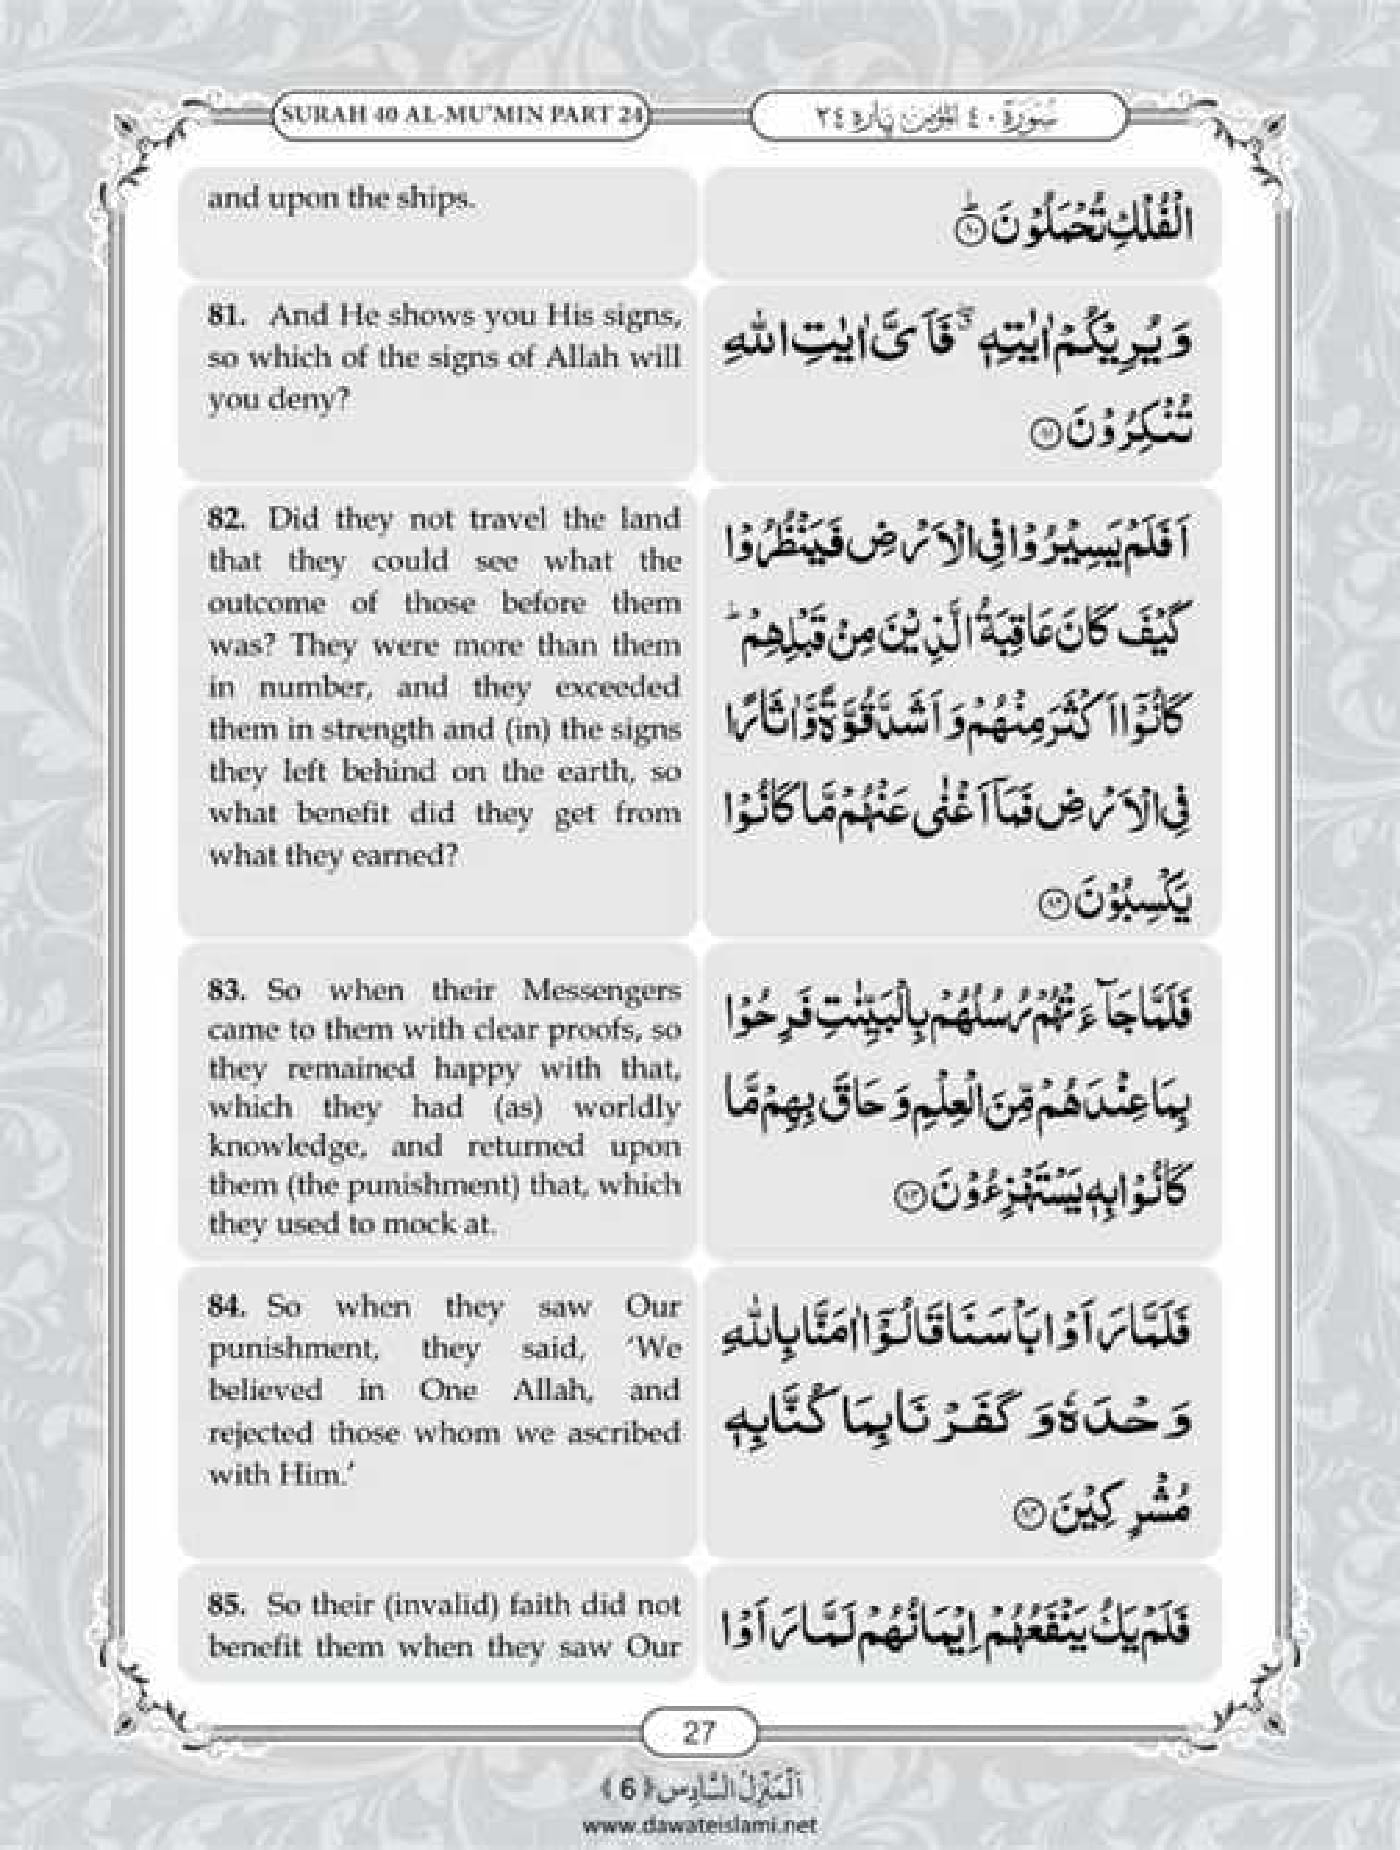 SURAH 40 AL-MU"MIN PART 24
سُوْرَة ٤٠ الْمُؤْمِن پَارَه ٢٤
and upon the ships.
الْفُلْكِ تُحْمَلُوْنَ ؕ﴿۸۰﴾
81. And He shows you His signs,
so which of the signs of Allah will
you deny?
وَ یُرِیْكُمْ اٰیٰتِهٖ ۖۗ فَاَیَّ اٰیٰتِ اللّٰهِ
تُنْكِرُوْنَ ﴿۸۱﴾
82. Did they not travel the land
that they could see what the
outcome of those before them
was? They were more than them
in number, and they exceeded
them in strength and (in) the signs
they left behind on the earth, so
what benefit did they get from
what they earned?
اَفَلَمْ یَسِیْرُوْا فِی الْاَرْضِ فَیَنْظُرُوْا
كَیْفَ كَانَ عَاقِبَةُ الَّذِیْنَ مِنْ قَبْلِهِمْ ؕ
كَانُوْۤا اَكْثَرَ مِنْهُمْ وَ اَشَدَّ قُوَّةً وَّ اٰثَارًا
فِی الْاَرْضِ فَمَاۤ اَغْنٰی عَنْهُمْ مَّا كَانُوْا
یَكْسِبُوْنَ ﴿۸۲﴾
83. So when their Messengers
came to them with clear proofs, so
they remained happy with that,
which they had (as) worldly
knowledge, and returned upon
them (the punishment) that, which
they used to mock at.
فَلَمَّا جَآءَتْهُمْ رُسُلُهُمْ بِالْبَیِّنٰتِ فَرِحُوْا
بِمَا عِنْدَهُمْ مِّنَ الْعِلْمِ وَ حَاقَ بِهِمْ مَّا
كَانُوْا بِهٖ یَسْتَهْزِءُوْنَ ﴿۸۳﴾
84. So when they saw Our
punishment, they said, ‘We
believed in One Allah, and
rejected those whom we ascribed
with Him.’
فَلَمَّا رَاَوْا بَاْسَنَا قَالُوْۤا اٰمَنَّا بِاللّٰهِ
وَحْدَهٗ وَ كَفَرْنَا بِمَا كُنَّا بِهٖ
مُشْرِكِیْنَ ﴿۸۴﴾
85. So their (invalid) faith did not
benefit them when they saw Our
فَلَمْ یَكُ یَنْفَعُهُمْ اِیْمَانُهُمْ لَمَّا رَاَوْا
27
اَلْمَنْزِلُ السَّادِس ﴿6﴾
www.dawateislami.net